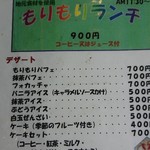 地元食材を使用 AM11:30~
もりもりランチ
900円
コーヒー又はジュース付
デザート
もりもりパフェ 700円
抹茶パフェ 700円
フォカッチャ 700円
バニラアイス (キャラメルソースかけ) 500円
抹茶アイス 500円
ぶどうアイス 500円
白玉ぜんざい 500円
ケーキ (季節のフルーツ付き) 400円
ケーキセット 700円
(コーヒー・紅茶・ミルク